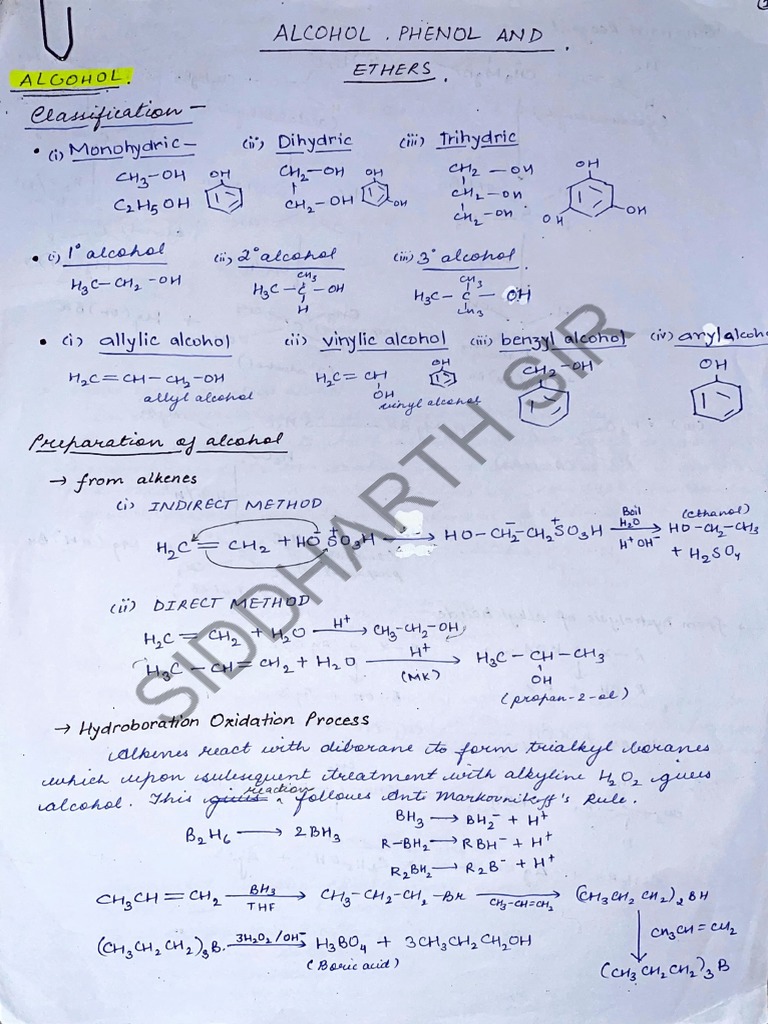 ALCOHOL. PHENOL AND
ETHERS.
ALCOHOL.
Classification -
• (i) Monohydric - (ii) Dihydric (iii) Trihydric
CH3-OH OH CH2-OH OH CH2-OH OH
C2H5OH CH2-OH OH CH2-OH OH OH
CH2-OH
• (i) 1° alcohol (ii) 2° alcohol (iii) 3° alcohol
H3C-CH2-OH CH3 CH3
H3C-C-OH H3C-C-OH
H CH3
• (i) allylic alcohol (ii) vinylic alcohol (iii) benzyl alcohol (iv) aryl alcoho
H2C=CH-CH2-OH H2C=CH OH CH2-OH OH
allyl alcohol OH vinyl alcohol
Preparation of alcohol
→ from alkenes
(i) INDIRECT METHOD
H2C=CH2 + HO⁻S⁺O3H → HO-CH2⁻-CH2S⁺O3H Boil H2O H⁺OH⁻ → (ethanol) HO-CH2-CH3
+ H2SO4
(ii) DIRECT METHOD
H2C=CH2 + H2O H⁺ → CH3-CH2-OH
H3C-CH=CH2 + H2O H⁺ (MK) → H3C-CH-CH3
OH
(propan-2-ol)
→ Hydroboration Oxidation Process
Alkenes react with diborane to form trialkyl boranes
which upon subsequent treatment with alkyline H2O2 gives
alcohol. This gives reaction follows Anti Markovnikoff's Rule.
B2H6 → 2BH3 BH3 → BH2⁻ + H⁺
R-BH2 → RBH⁻ + H⁺
R2BH2 → R2B⁻ + H⁺
CH3CH=CH2 BH3 THF → CH3-CH2-CH2-Br CH3-CH=CH2 → (CH3CH2CH2)2BH
CH3CH=CH2
(CH3CH2CH2)3B 3H2O2/OH⁻ → H3BO4 + 3CH3CH2CH2OH
(Boric acid)
(CH3CH2CH2)3B
SIDDHARTH SIR